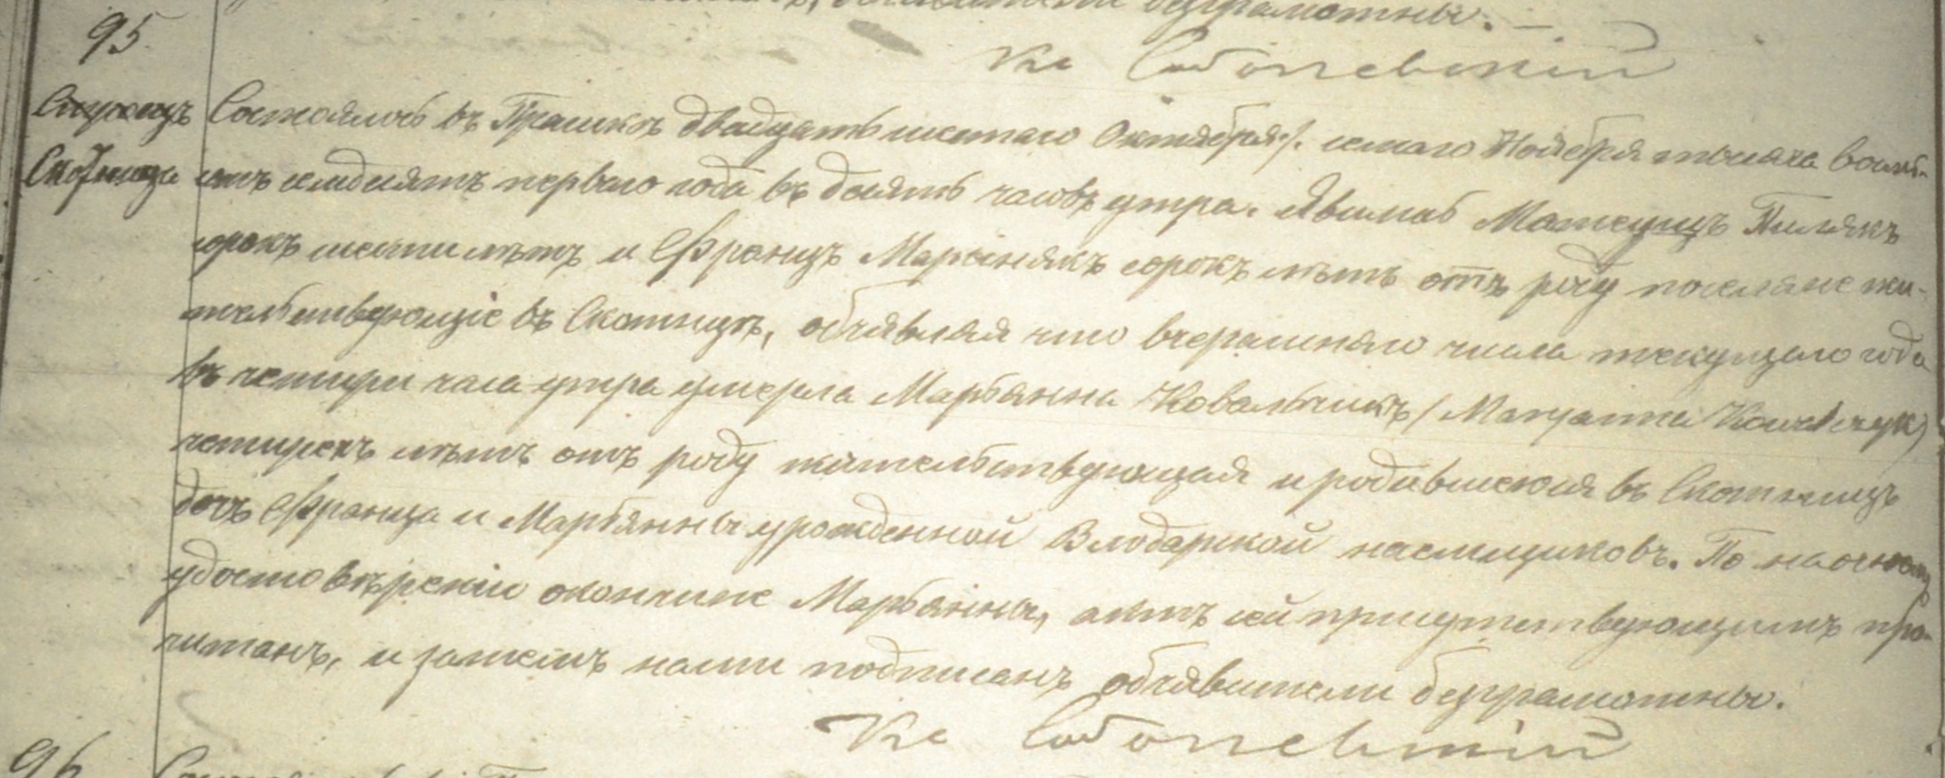 безграмотны. —
95
Кс Соболевский
Скотница
Состоялось въ Прашкѣ двадцать шестаго Октября /. семаго Ноября тысяча восемь-
сотъ семдесятъ перваго года въ десять часовъ утра. Явились Матеушъ Пилякъ
сорокъ шести лѣтъ и Францъ Марсинякъ сорокъ лѣтъ отъ роду поселяне жи-
тельствующіе въ Скотницѣ, объявляя что вчерашняго числа текущаго года
въ четыри часа утра умерла Марьянна Ковальчикъ / Maryanna Kowalczyk /
четырехъ лѣтъ отъ роду жительствующая и родившаяся въ Скотницѣ
дочь Франца и Марьянны урожденной Влодарской наемщиковъ. По наочному
удостовѣреніи окончине Марьянны, актъ сей присутствующимъ про-
читанъ, и затемъ нами подписанъ объявители безграмотны.
Кс Соболевский
96